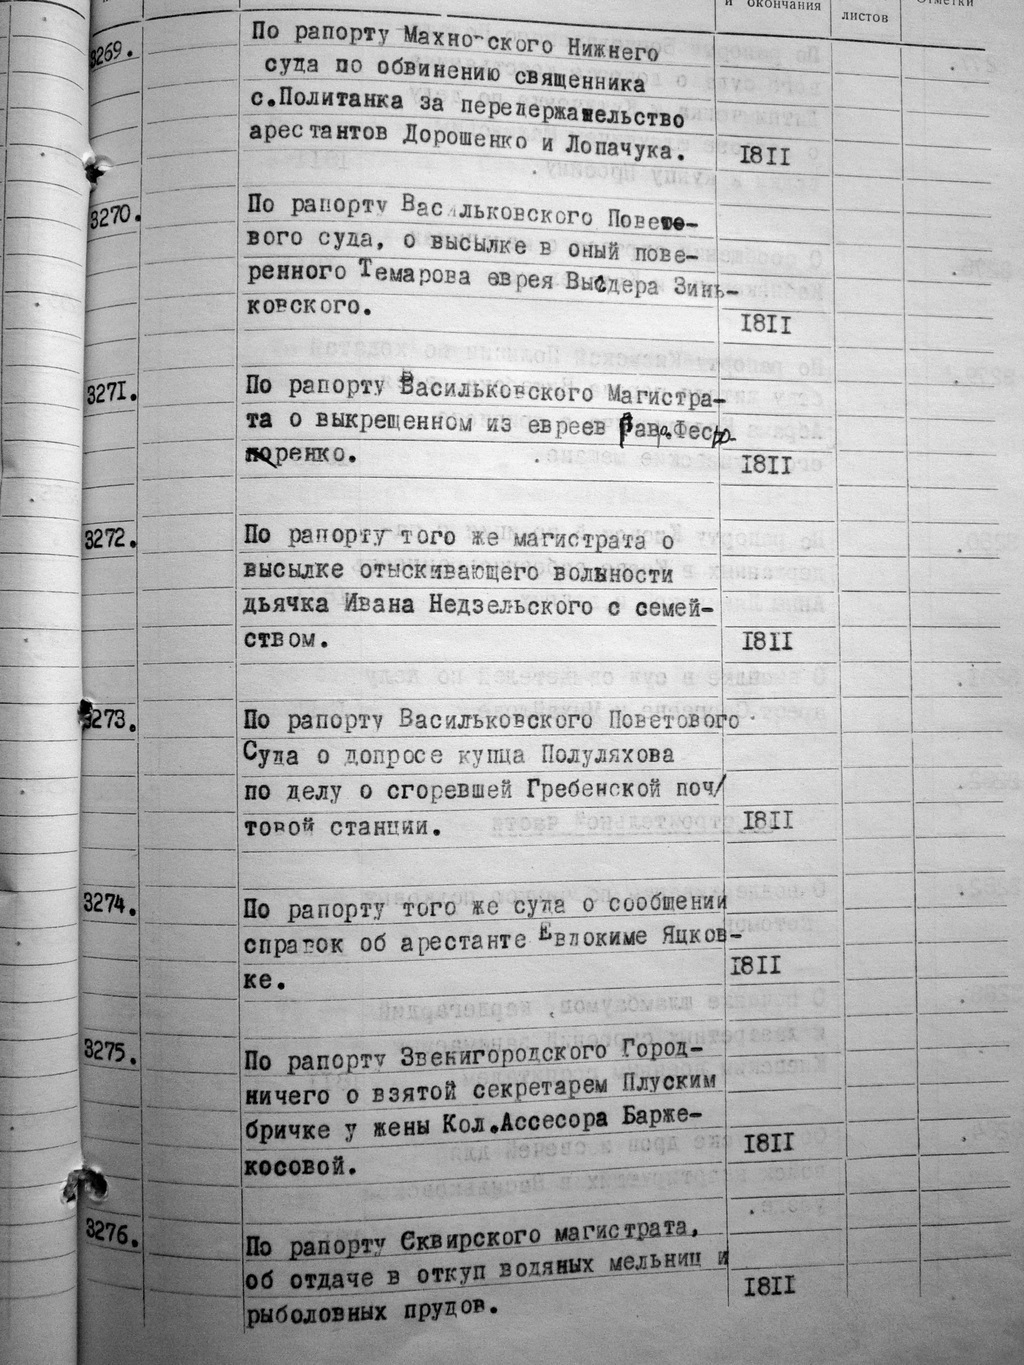 и окончания
листов
Отметки
3269.
По рапорту Махно-ского Нижнего
суда по обвинению священника
с.Политанка за передержательство
арестантов Дорошенко и Лопачука.
1811
3270.
По рапорту Васильковского Повето-
вого суда, о высылке в оный пове-
ренного Темарова еврея Высдера Зинь-
ковского.
1811
3271.
По рапорту Васильковского Магистра-
та о выкрещенном из евреев
норенко.
1811
3272.
По рапорту того же магистрата о
высылке отыскивающего вольности
дьячка Ивана Недзельского с семей-
ством.
1811
3273.
По рапорту Васильковского Поветового
Суда о допросе купца Полуляхова
по делу о сгоревшей Гребенской поч/
товой станции.
1811
3274.
По рапорту того же суда о сообщении
справок об арестанте Евлокиме Яцков-
ке.
1811
3275.
По рапорту Звенигородского Город-
ничего о взятой секретарем Плуским
бричке у жены Кол.Ассесора Барже-
косовой.
1811
3276.
По рапорту Сквирского магистрата,
об отдаче в откуп водяных мельниц и
рыболовных прудов.
1811